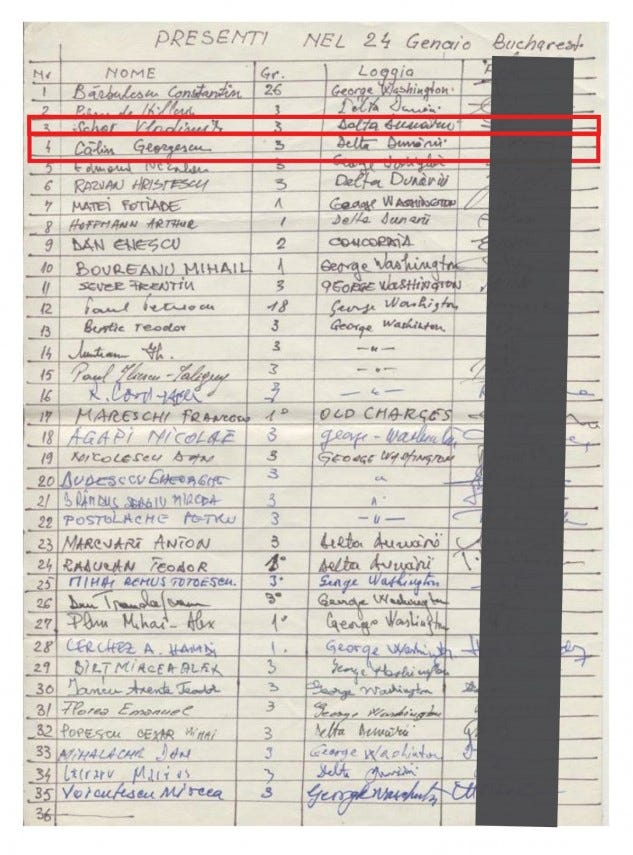 PRESENTI NEL 24 Genaio Bucharest.
Nr NOME Gr. Loggia
1 Bărbulescu Constantin 26 George Washington.
2 3 Delta Dunării
3 Schor Vladimir 3 Delta Dunării
4 Călin Georgescu 3 Delta Dunării
5 Edmond 3 George Washington
6 RAZVAN HRISTESCU 3 Delta Dunării
7 MATEI FOTIADE 1 George WASHINGTON
8 HOFFMANN ARTHUR 1 Delta Dunarii
9 DAN ENESCU 2 CONCORDIA
10 BOUREANU MIHAIL 1 George Washington
11 SEVER FRENTIU 3 GEORGE WASHINGTON
12 Paul 18 George Washington
13 Teodor 3 George Washinton
14 3 -"-
15 Paul 3 -"-
16 3 -"-
17 MARESCHI FRANCESCO 1° OLD CHARGES
18 AGAPI NICOLAE 3 george-
19 NICOLESCU DAN 3 GEORGE WASHINGTON
20 DUDESCU GHEORGHE 3 "
21 SERGIU MIRCEA 3 "
22 POSTOLACHE PETRU 3 -"-
23 MARCVART ANTON 3 Delta Dunării
24 RADUCAN TEODOR 1° Delta Dunării
25 MIHAI REMUS TOTOESCU. 3° George Washington
26 Dan 3° George Washington
27 Mihai-Alex 1° George Washington
28 CERCHEZ A. HAMDI 1. George Washington
29 BIRT MIRCEA ALEX 3 George Washington
30 Iancu Teodor 3 George Washington
31 Florea Emanuel 3 George Washington
32 POPESCU CEZAR MIHAI 3 Delta Dunării
33 MIHALACHE DAN 3 George Washinton
34 Marius 3 Delta Dunării
35 Voiculescu Mircea 3 George
36